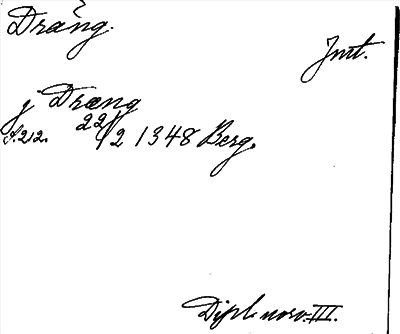 Dräng.
Jmt.
j Dræng
S. 212. 22/2 1348 Berg.
Dipl. norv. III.